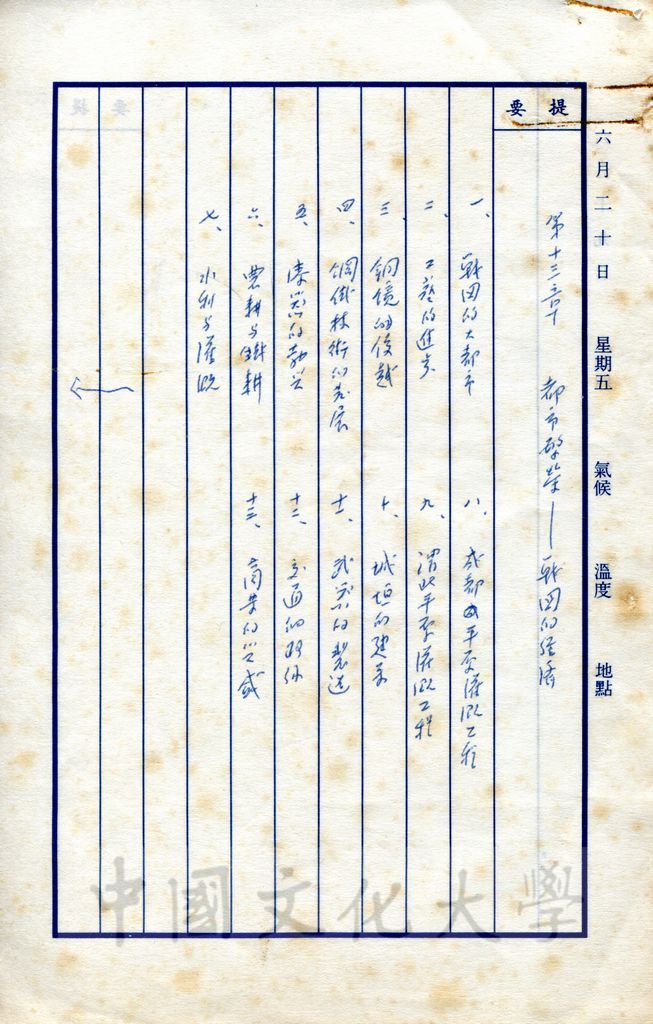 六月二十日 星期五 氣候 溫度 地點
提要
第十三章 都市繁榮——戰國的經濟
一、戰国的大都市
二、工藝的進步
三、銅鏡的優越
四、鋼鐵技術的發展
五、漆器的勃兴
六、農耕与鐵耕
七、水利与灌溉
八、成都平原灌溉工程
九、渭北平原灌溉工程
十、城垣的建築
十一、武器的製造
十二、交通的開佈
十三、商業的兴盛
中國文化大學